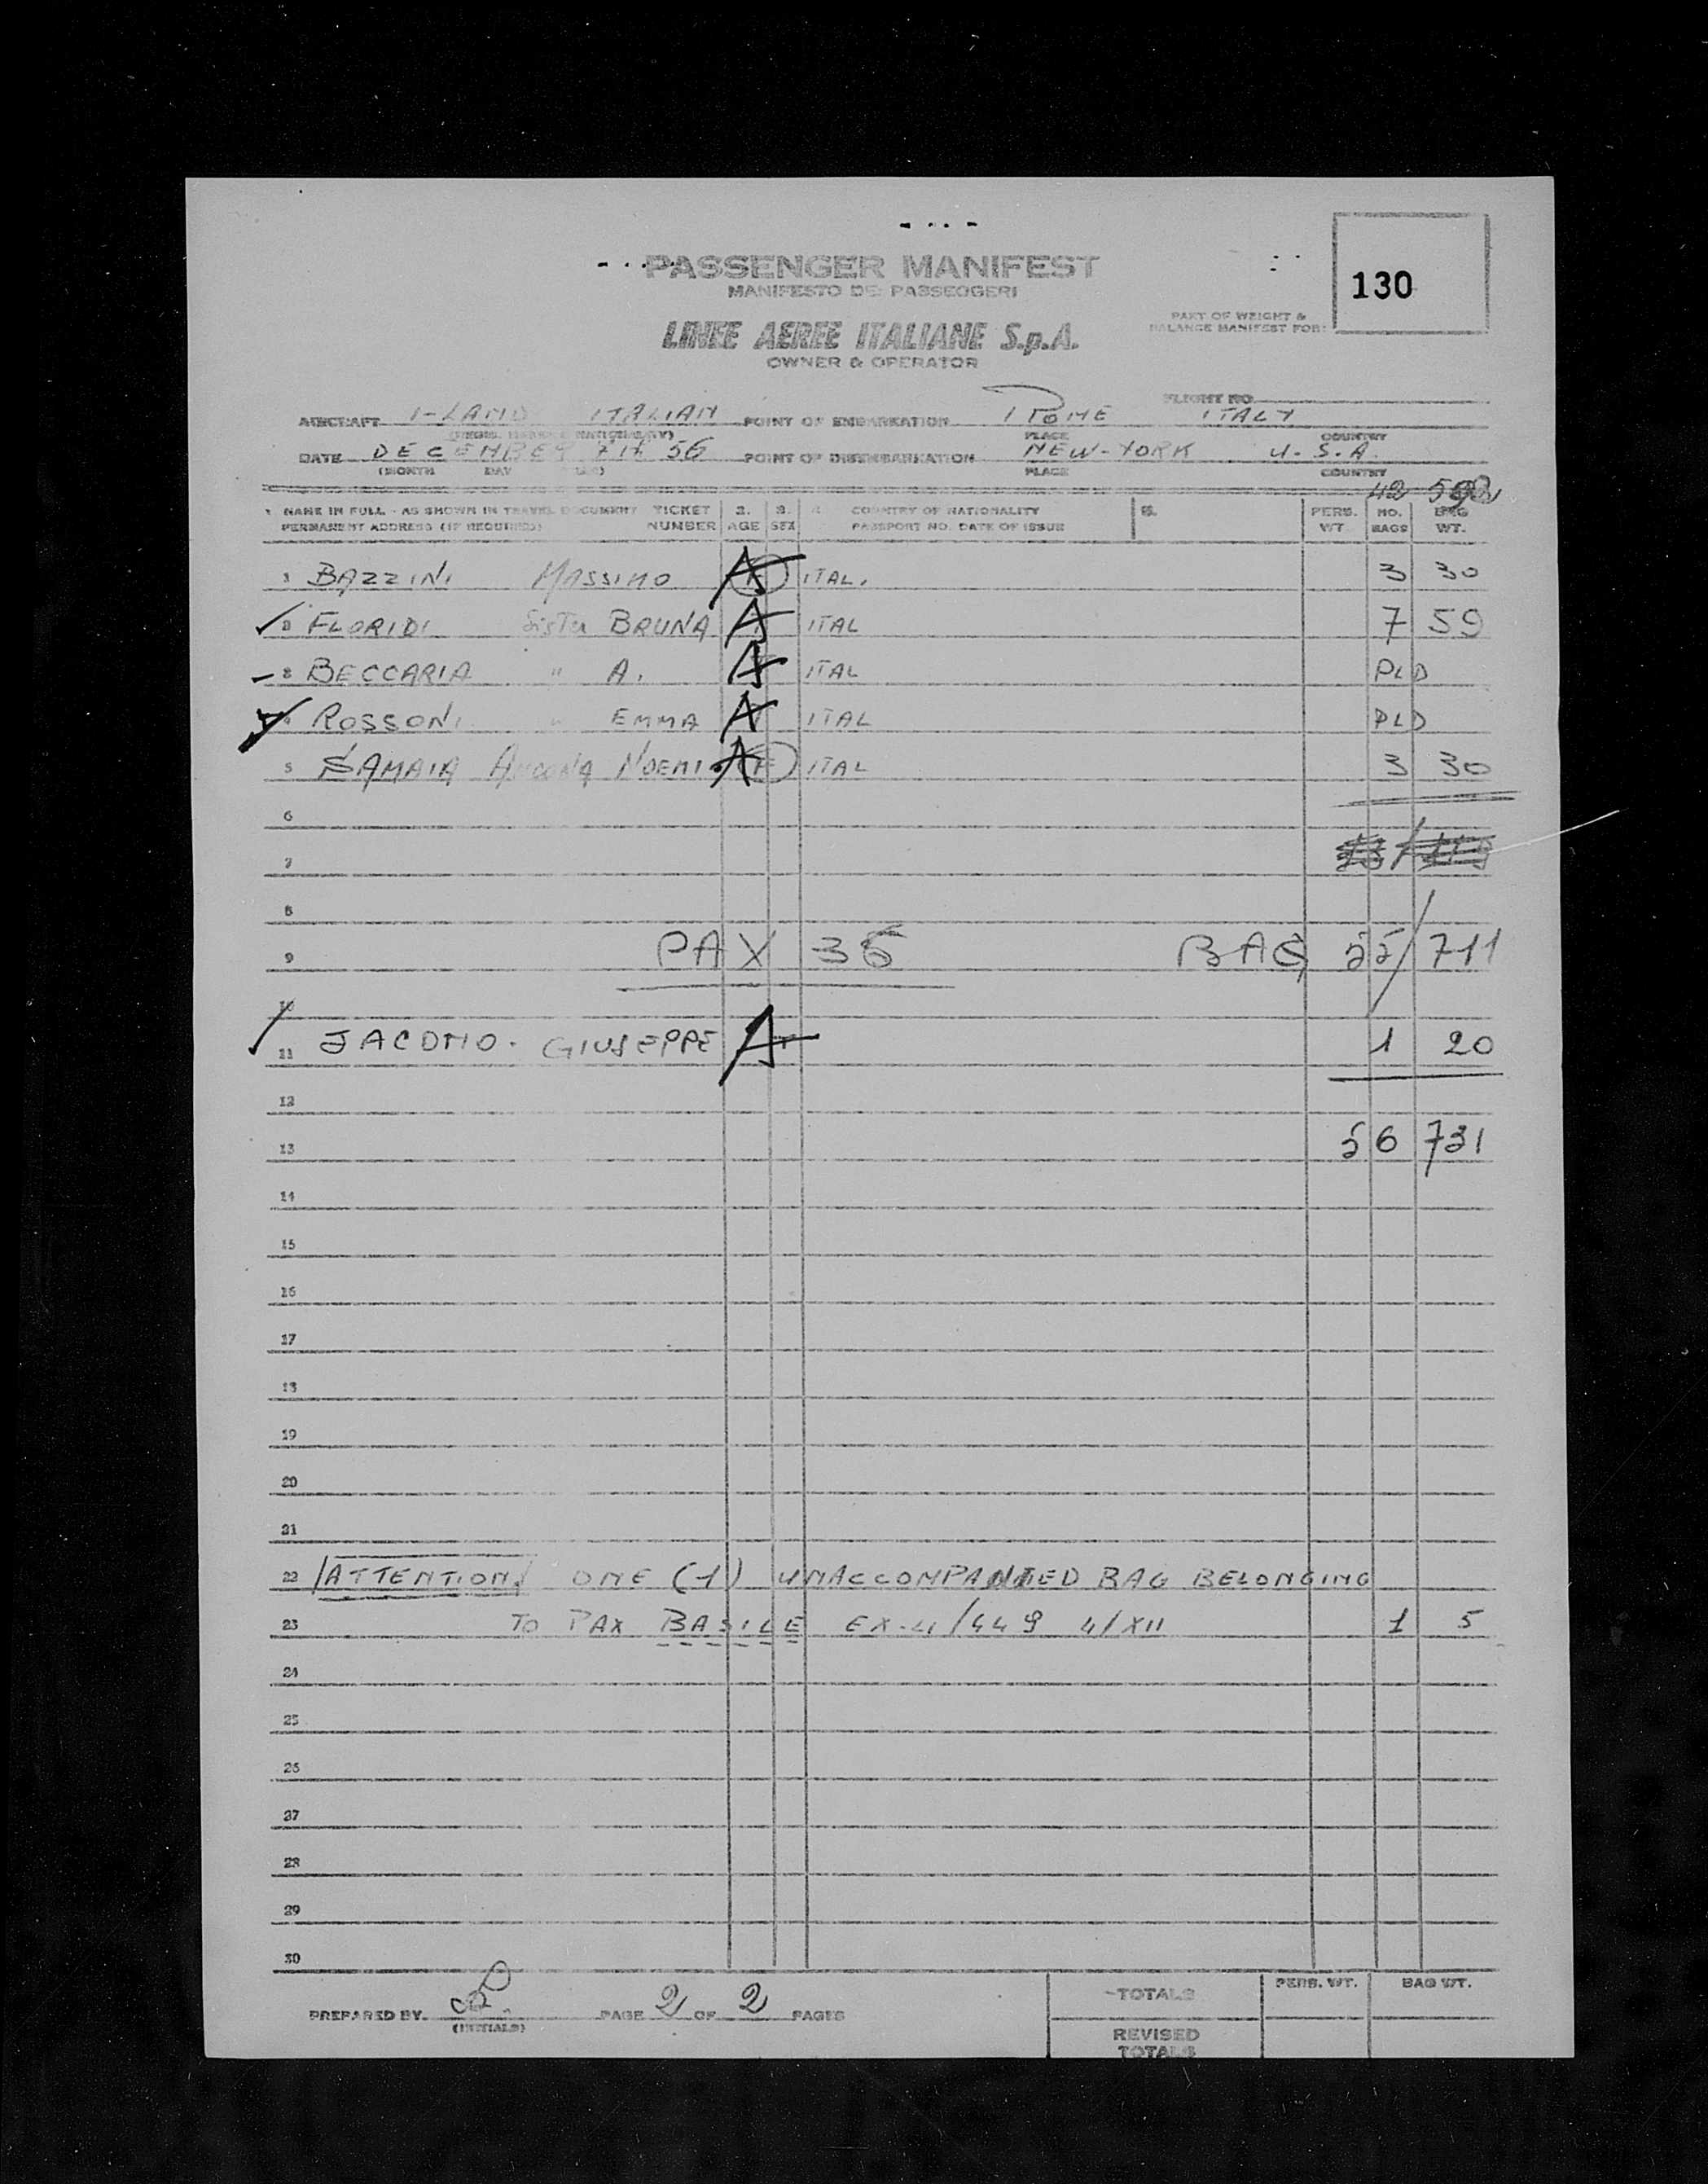 PASSENGER MANIFEST
MANIFESTO DEI PASSEGGERI
130
PART OF WEIGHT &
BALANCE MANIFEST FOR:
LINEE AEREE ITALIANE S.p.A.
OWNER & OPERATOR
FLIGHT NO.
AIRCRAFT I-LAND ITALIAN POINT OF EMBARKATION ROME ITALY
PLACE COUNTRY
DATE DECEMBER 7th 56 POINT OF DISEMBARKATION NEW-YORK U.S.A.
(MONTH DAY PLACE COUNTRY
42
1. NAME IN FULL - AS SHOWN IN TRAVEL DOCUMENT TICKET 2. 3. 4. COUNTRY OF NATIONALITY 5. PERS. NO. BAG
PERMANENT ADDRESS (IF REQUIRED) NUMBER AGE SEX PASSPORT NO. DATE OF ISSUE WT. BAGS WT.
1 BAZZINI MASSIMO A ITAL. 3 30
2 FLORIDI Sister BRUNA A ITAL 7 59
3 BECCARIA " A. A ITAL PLD
4 ROSSONI " EMMA A ITAL PLD
5 SAMAIA NOEMI A F ITAL 3 30
6
7
8
9 PAX 36 BAG 55/711
10
11 JACONO. GIUSEPPE A 1 20
12
13 56 731
14
15
16
17
18
19
20
21
22 ATTENTION ONE (1) UNACCOMPANIED BAG BELONGING
23 TO PAX BASILE EX-4/449 4/XII 1 5
24
25
26
27
28
29
30
PERS. WT. BAG WT.
TOTALS
PREPARED BY PAGE 2 OF 2 PAGES
(INITIALS)
REVISED
TOTALS